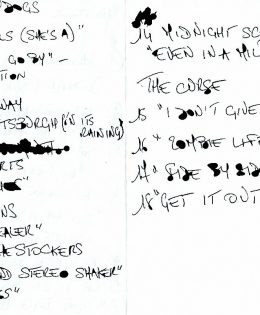 DOGS
LS (SHE'S A)"
GO BY" -
TION
WAY
TSBURGH (IN ITS RAINING)
RTS
NS
EALER"
STOCKERS
STEREO SHAKER"
14 MIDNIGHT SC
"EVEN IN A MIL
THE CURSE
15 "I DON'T GIVE
16 " ZOMBIE LIFE
17 " SIDE BY SID
18 "GET IT OUT